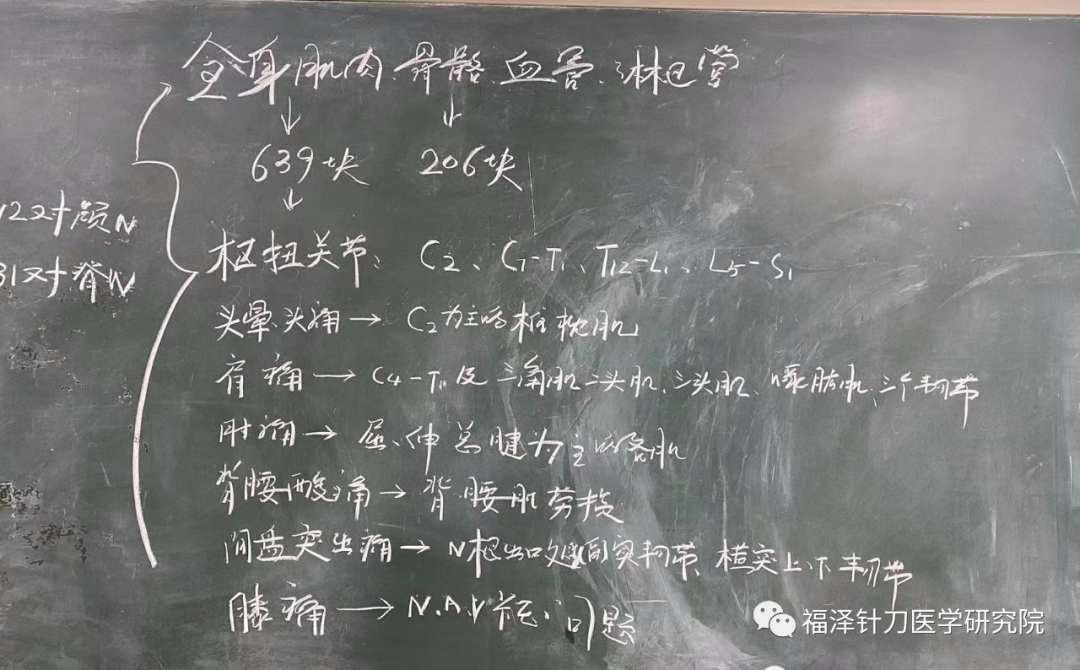 全身肌肉.骨骼.血管.淋巴管
639块 206块
12对颅N
31对脊N
枢扭关节: C2、C7-T1、T12-L1、L5-S1
头晕.头痛→ C2为主的枢枕肌
肩痛→ C4-T1及三角肌二头肌、三头肌、喙肱肌、三个韧带
肘痛→ 屈、伸总腱为主的各肌
背腰酸痛→ 背.腰肌劳损
间盘突出痛→ N根出口处 韧带、横突上、下韧带
膝痛→ N.A.V 问题
福泽针刀医学研究院